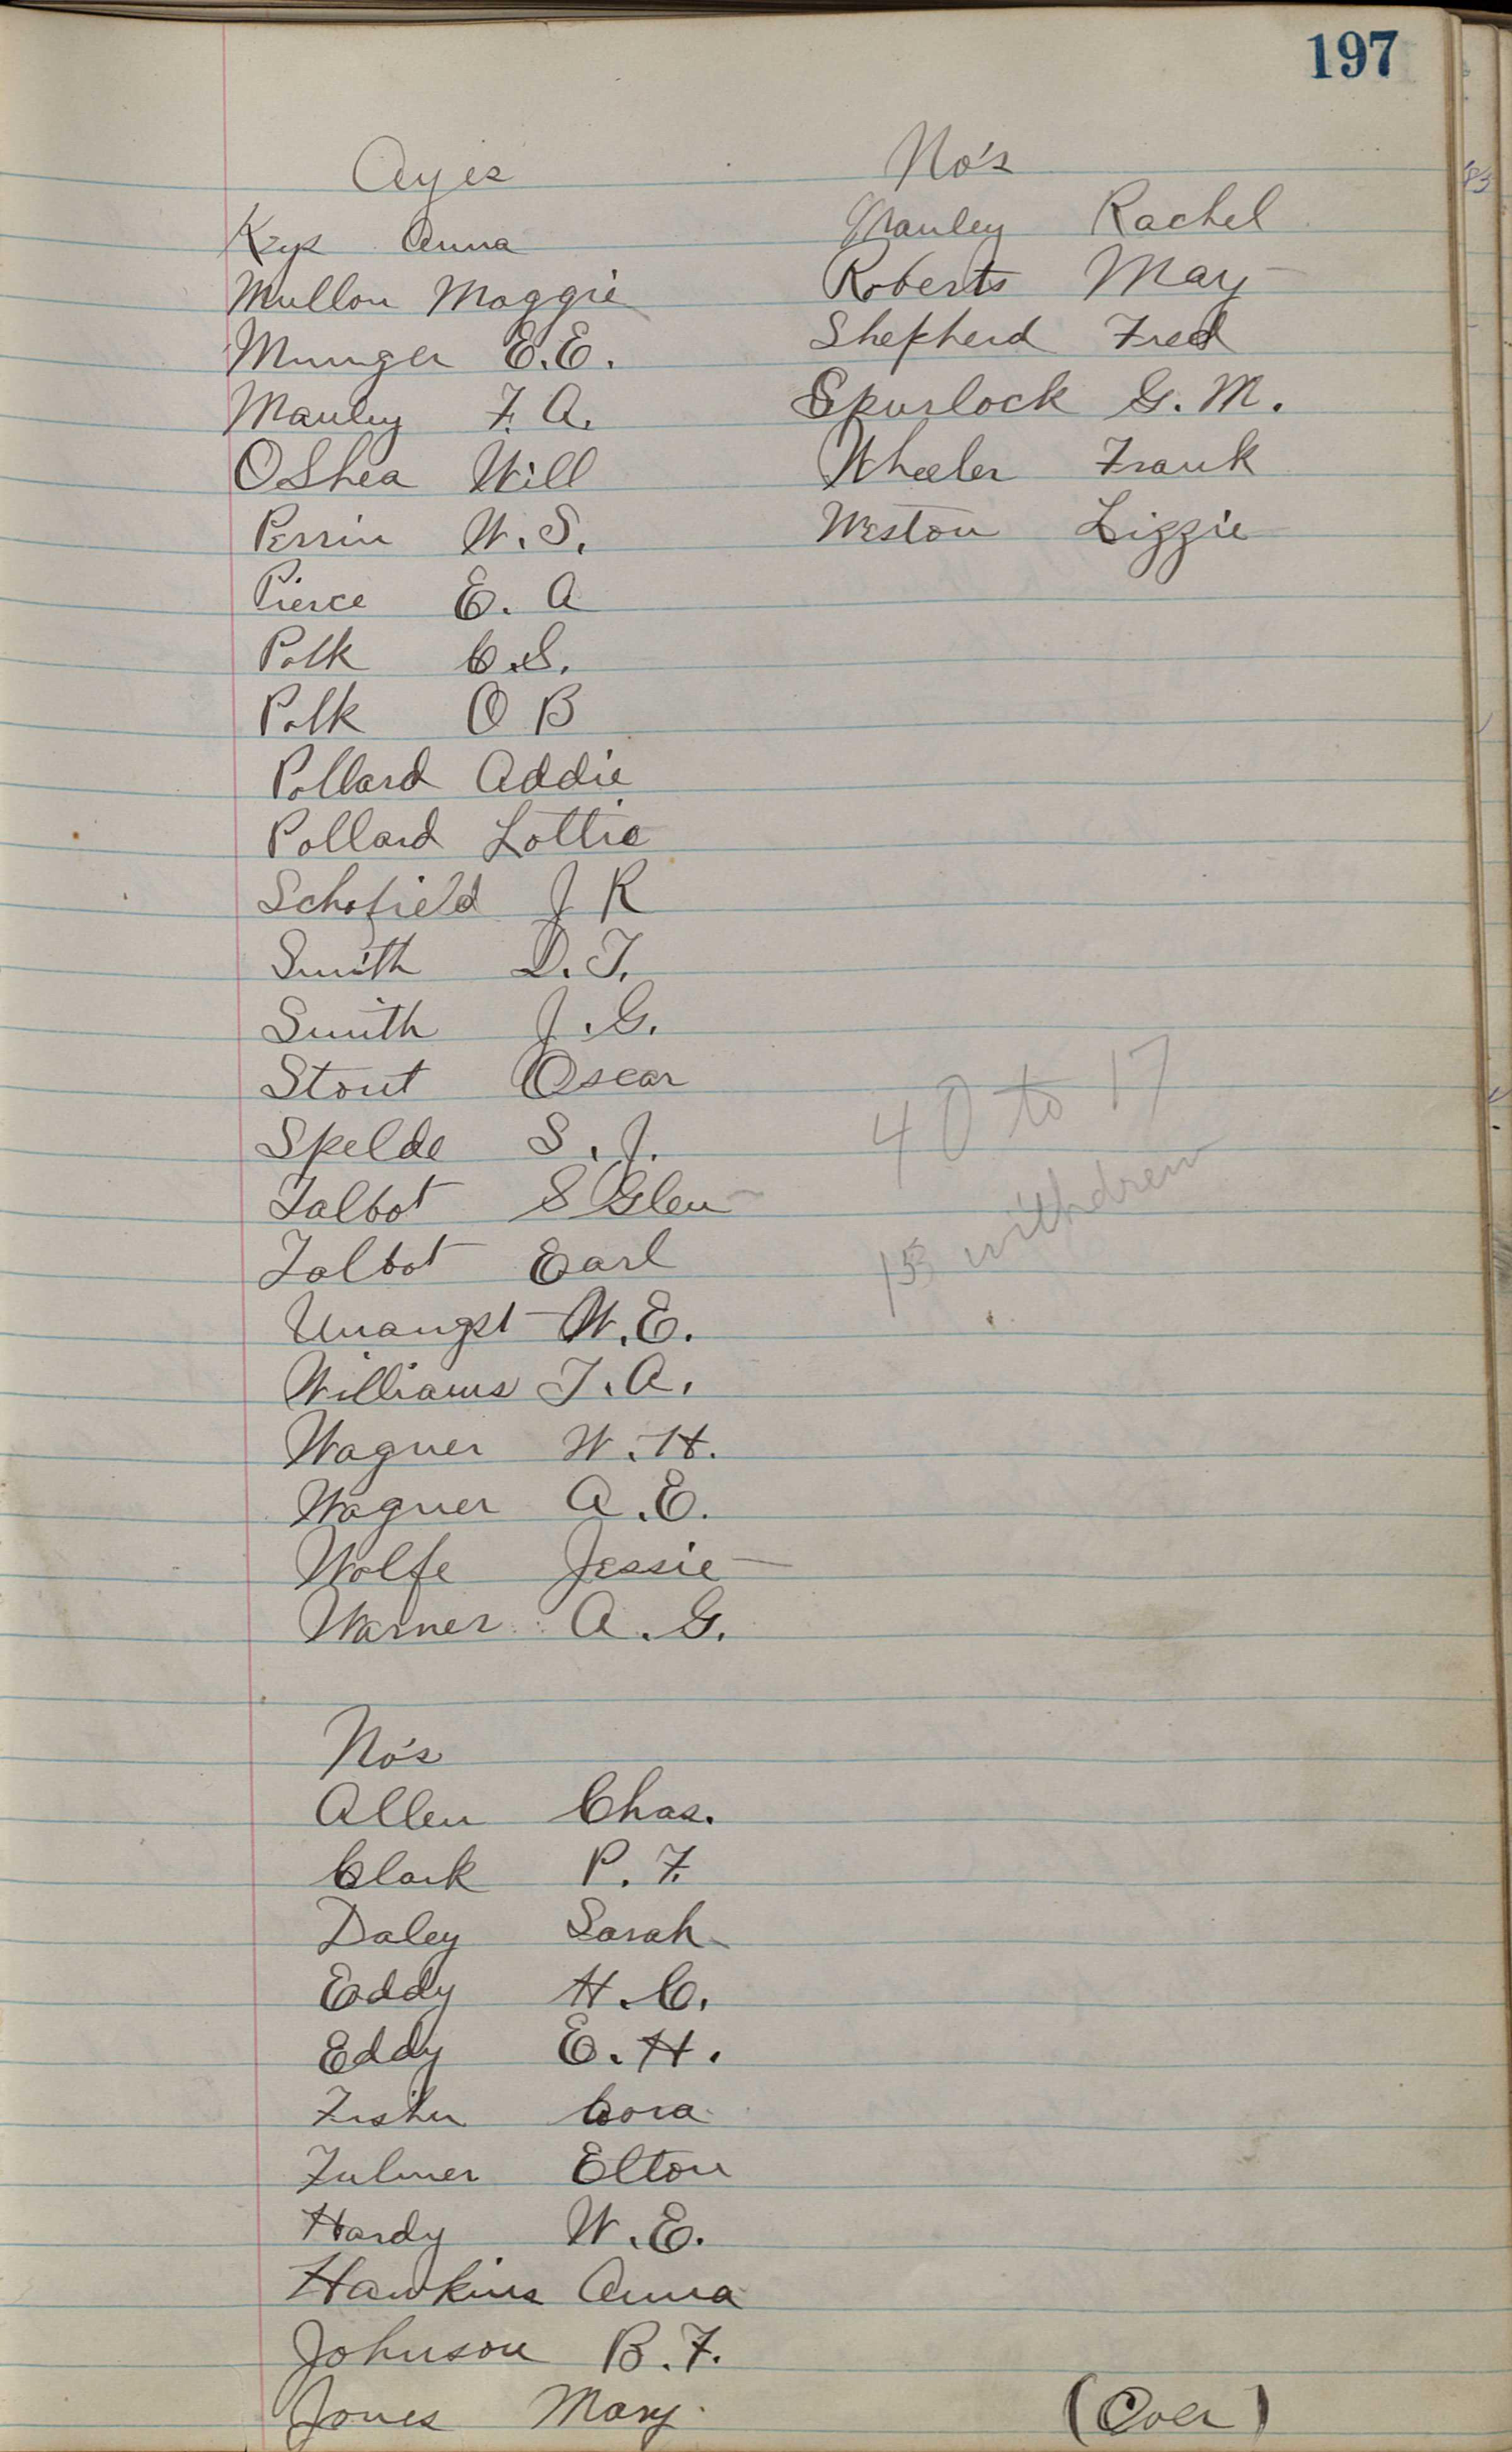 197
Ayes
Keys Anna
Mullon Maggie
Munger E.E.
Manley F. A.
OShea Will
Perrin W. S.
Pierce E. A
Polk C. S.
Polk O B
Pollard Addie
Pollard Lottie
Schofield J R
Smith D. T.
Smith J. G.
Stout Oscar
Spelde S. J.
Talbot S Glen
Talbot Earl
Unangst W. E.
Williams T. A.
Wagner W. H.
Wagner A. E.
Wolfe Jessie
Warner A. G.
No's
Allen Chas.
Clark P. F.
Daley Sarah
Eddy H. C.
Eddy E. H.
Fisher Cora
Fulmer Elton
Hardy W. E.
Hawkins Anna
Johnson B. F.
Jones Mary
No's
Manley Rachel
Roberts May
Shepherd Fred
Spurlock G. M.
Wheeler Frank
Weston Lizzie
40 to 17
withdrew
(Over)